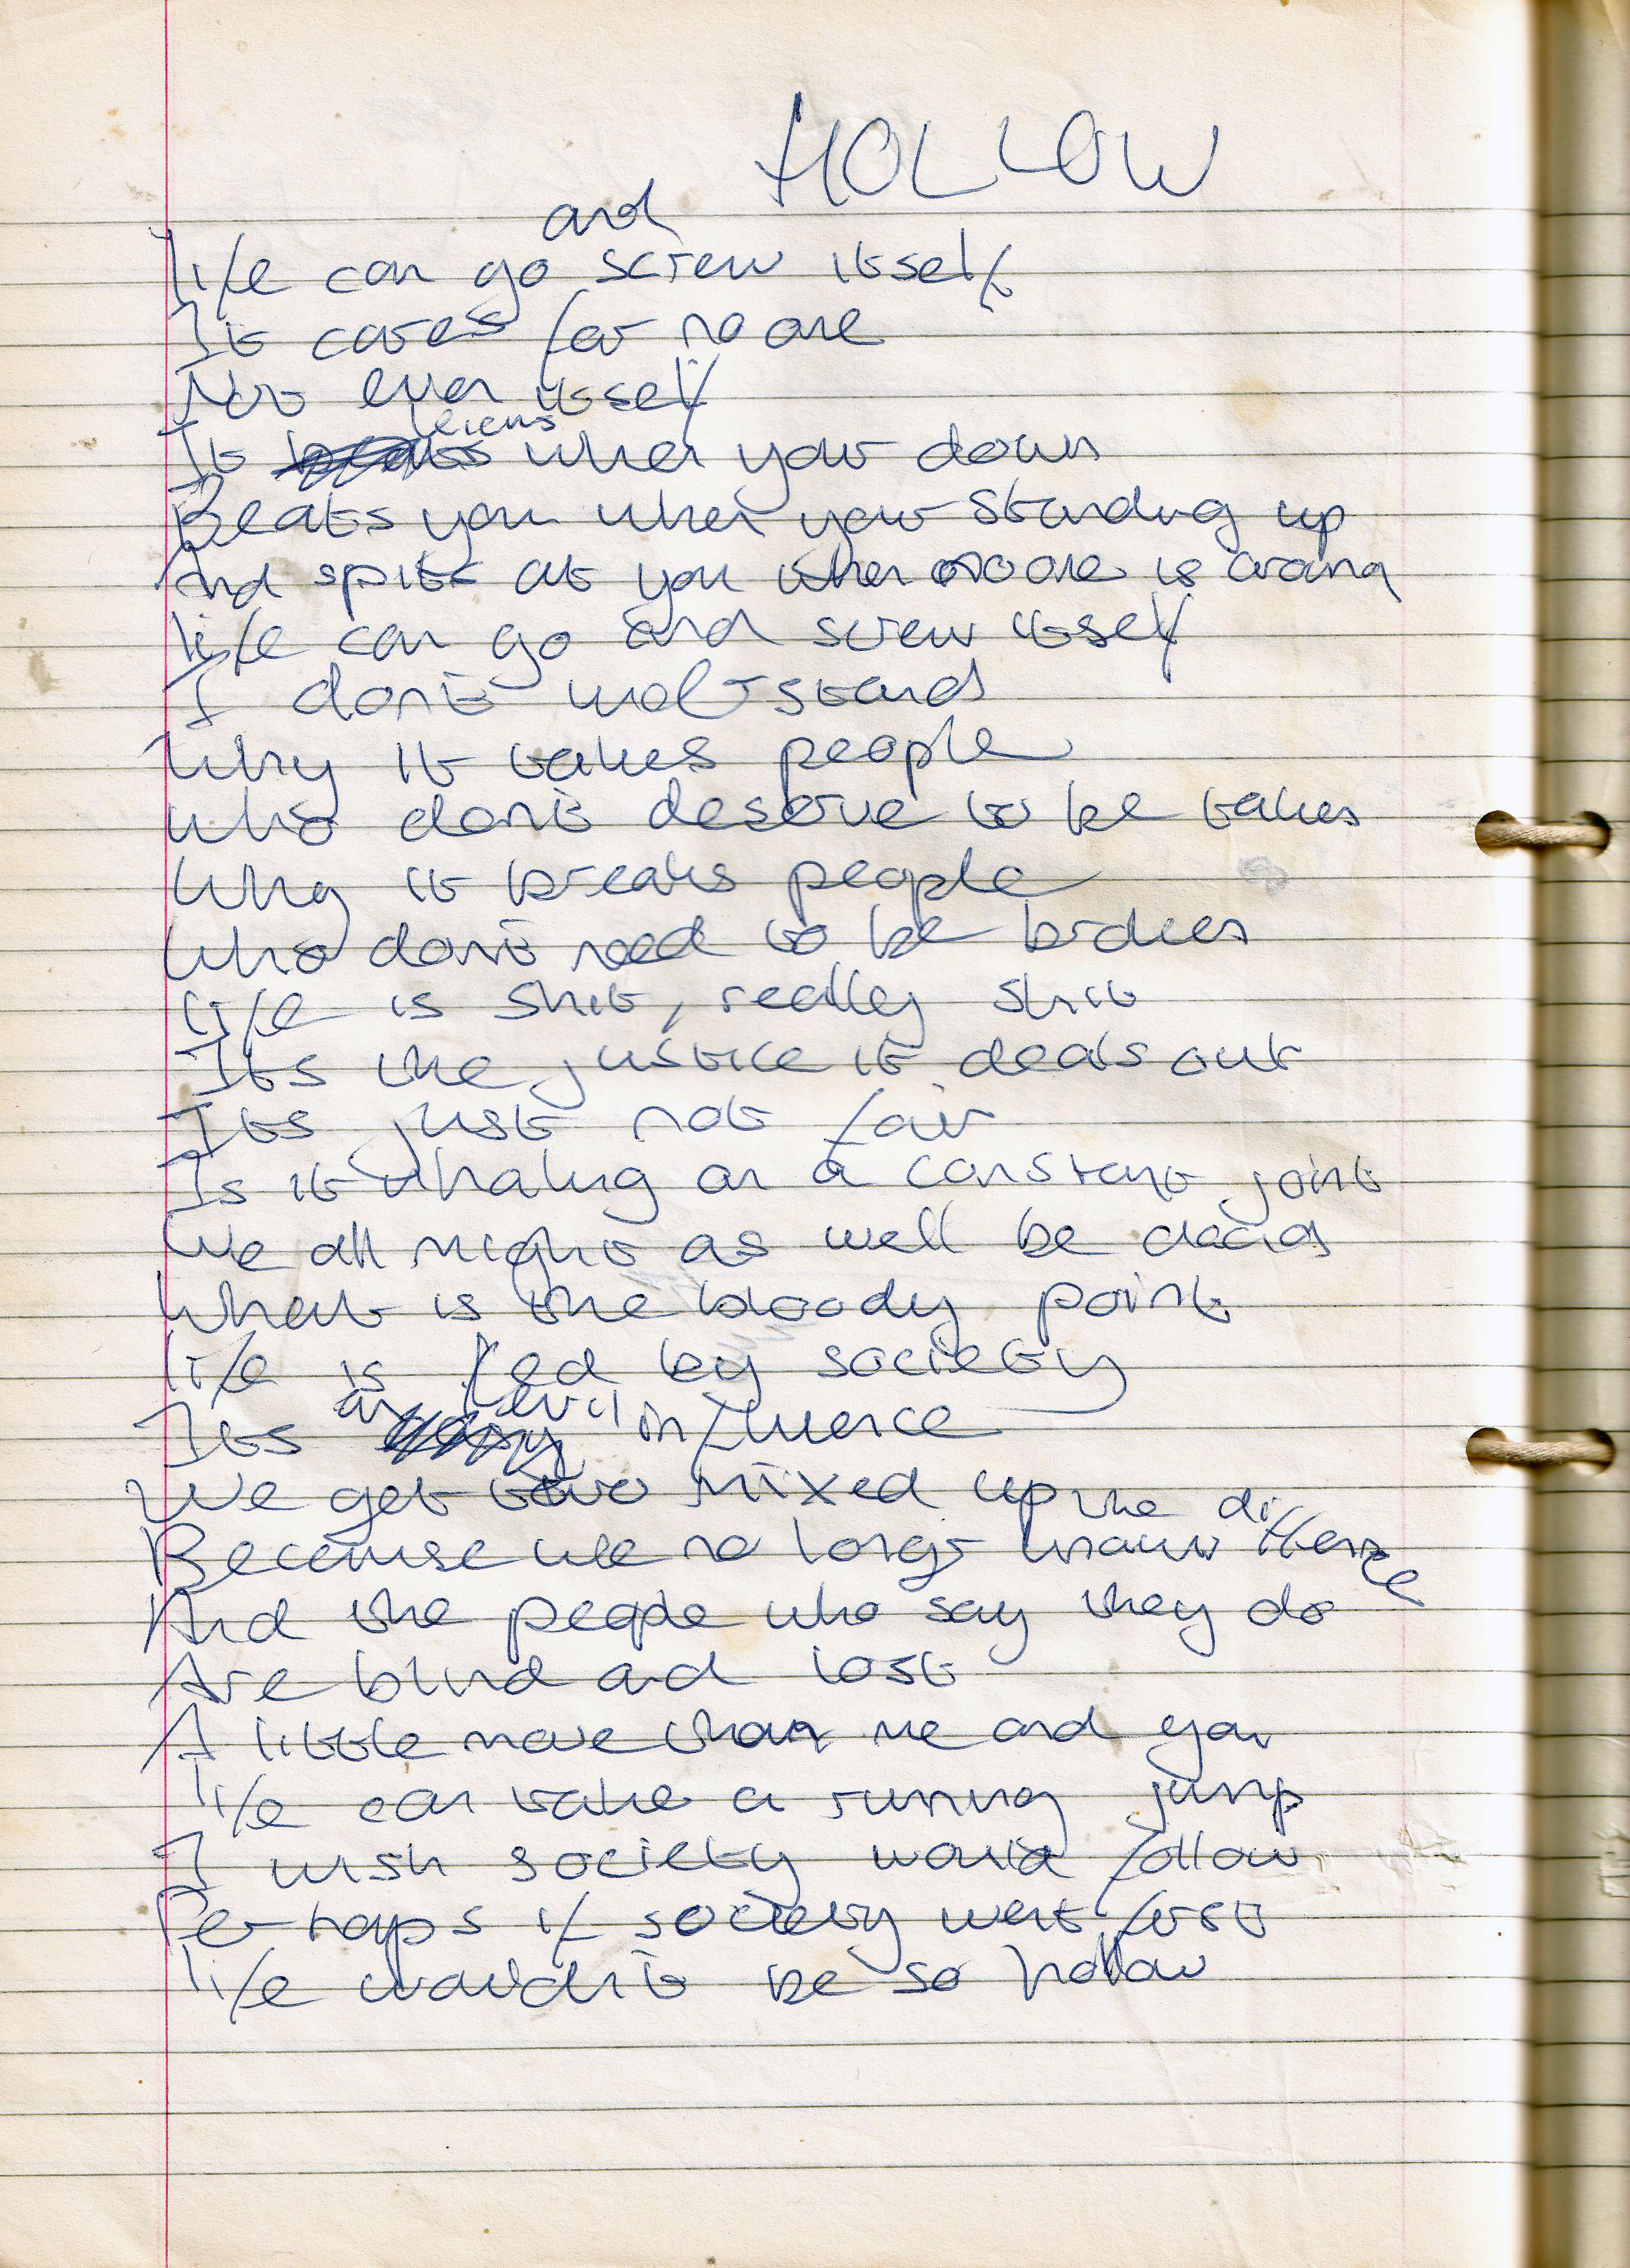 HOLLOW
and
life can go screw itself
It cares for no one
Not even itself
It kicks when your down
Beats you when your standing up
And spits at you when no one is around
life can go and screw itself
I don't understand
Why it takes people
who don't deserve to be taken
Why it breaks people
who don't need to be broken
life is shit, really shit
Its the justice it deals out
Its just not fair
Is it inhaling on a constant joint
We all might as well be dead
What is the bloody point
life is fed by society
Its an evil influence
We get two mixed up
Because we no longer know the difference
And the people who say they do
Are blind and lost
A little more than me and you
life can take a running jump
I wish society would follow
Perhaps if society went first
life wouldn't be so hollow